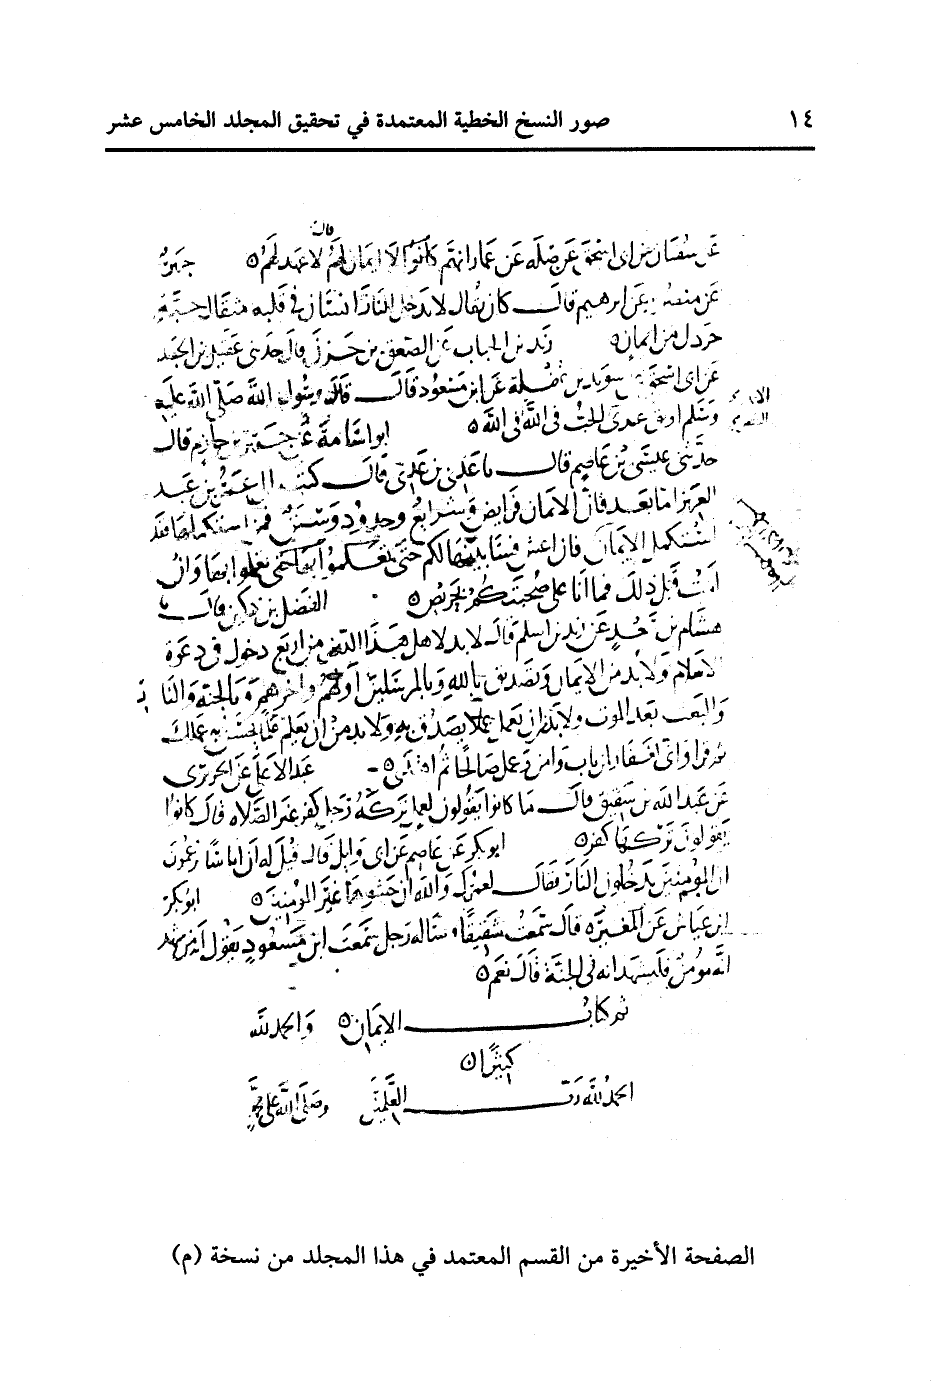 ١٤ صور النسخ الخطية المعتمدة في تحقيق المجلد الخامس عشر
قال
عن سفيان عن ابي اسحق عن صله عن عمار انهم كانوا لا ايمان لهم لا عهد لهم ه جرير
عن منصور عن ابرهيم قال كان يقال لا يدخل النار انسان في قلبه مثقال حبة من
خردل من ايمان ه زيد بن الحباب عن الصعق بن حزن قال حدثني عقيل بن الجعد
عن ابي اسحق عن سويد بن غفلة عن ابن مسعود قال قال رسول الله صلى الله عليه
وسلم اوثق عرى الحب في الله في الله ه ابو اسامة عن جرير بن حازم قال
حدثني عيسى بن عاصم قال ما عدي بن عدي قال كتب الي عمر بن عبد
العزيز اما بعد فان الايمان فرايض وشرايع وحدود وسنن فمن استكملها فقد
استكمل الايمان فان اعش فسابينها لكم حتى تعملوا بها وان
امت قبل ذلك فما انا على صحبتكم بحريص ه الفضل بن دكين قال ما
هشام بن عن زيد بن اسلم قال لا بد لاهل هذا الدين من اربع دخول في دعوة
الاسلام ولا بد من الايمان وتصديق بالله وبالمرسلين اولهم واخرهم وبالجنة والنا
والبعث بعد الموت ولا بد ان تعمل عملا يصدق به ولا بد من ان تعلم علما يحسن به عملك
ثم قرا واني لغفار لمن تاب وامن وعمل صالحا ثم اهتدى ه عبد الاعلى عن الجريري
عن عبد الله بن شقيق قال ما كانوا يقولون لعمل تركه رجل كفر غير الصلاه قال كانوا
يقولون تركها كفر ه ابو بكر عن عاصم عن ابي وايل قال قيل له ان اناسا يزعمون
ان المؤمنين يدخلون النار فقال لعمرك والله ان حشوها غير المؤمنين ه ابو بكر
ابن عياش عن المغيره قال سمعت شقيقا وساله رجل سمعت ابن مسعود يقول انه من شهد
انه مؤمن فليشهد انه في الجنة قال نعم ه
تم كتاب الايمان ه والحمد لله
كثيرا ه
الحمد لله رب العلمين وصلى الله على محمد
الصفحة الأخيرة من القسم المعتمد في هذا المجلد من نسخة (م)